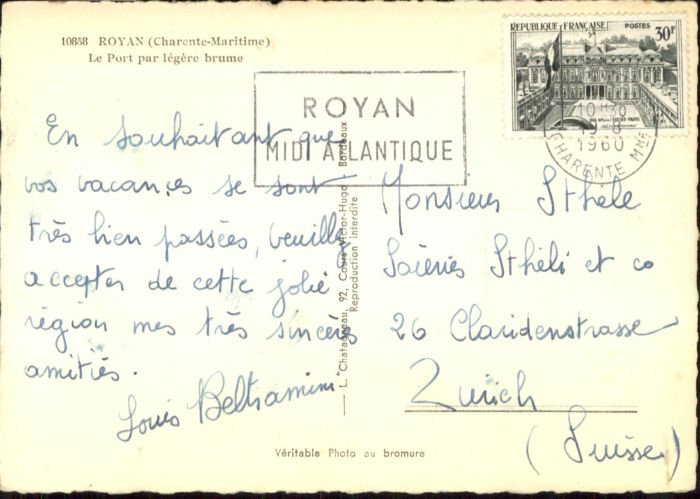 10858 ROYAN (Charente-Maritime)
Le Port par légère brume
REPUBLIQUE FRANÇAISE POSTES
30F
ROYAN
MIDI ATLANTIQUE
1960
CHARENTE MME
En souhaitant que
vos vacances se sont
très bien passées, veuillez
accepter de cette jolie
région mes très sincères
amitiés.
Louis Beltramini
L. Chatagneau, 92, Cours Victor-Hugo - Bordeaux
Reproduction interdite
Monsieur Sthele
Soieries Stheli et co
26 Claridenstrasse
Zurich
(Suisse)
Véritable Photo au bromure